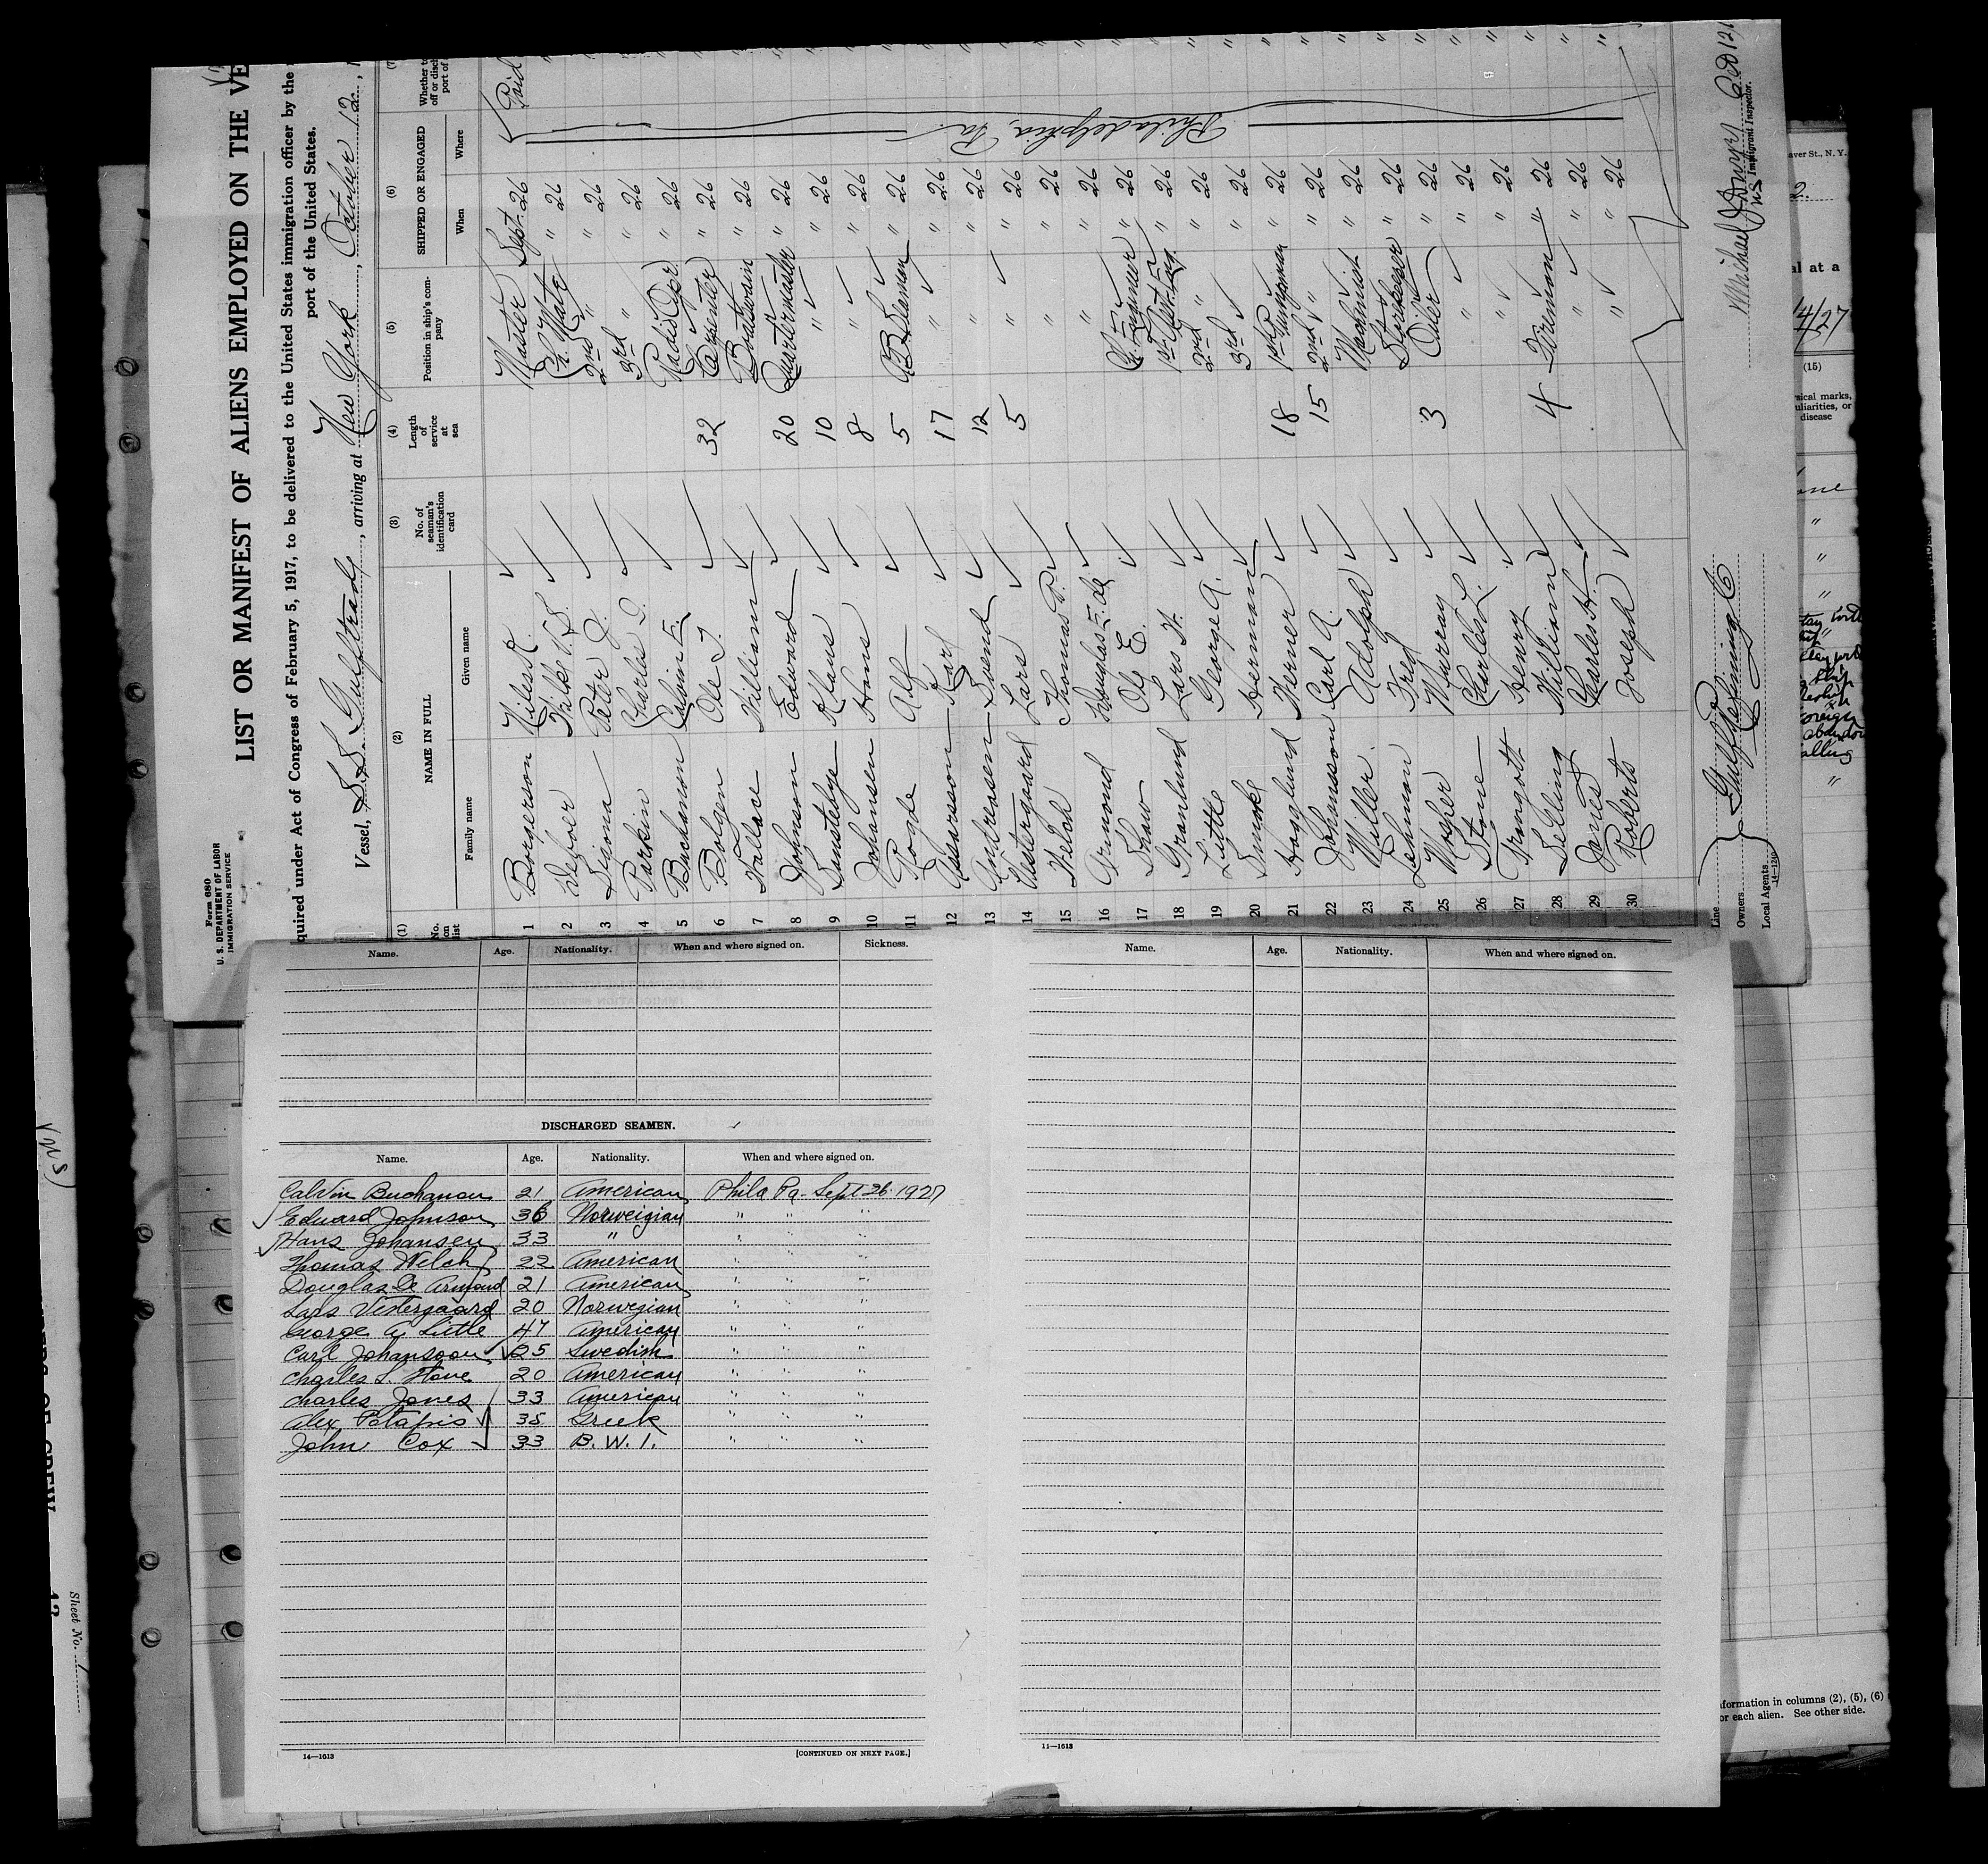 Form 680
U. S. DEPARTMENT OF LABOR
IMMIGRATION SERVICE
LIST OR MANIFEST OF ALIENS EMPLOYED ON THE VE
quired under Act of Congress of February 5, 1917, to be delivered to the United States immigration officer by the
port of the United States.
Vessel, S.S. Gulftrade, arriving at New York, October 12, 1
(1) (2) (3) (4) (5) (6) (7)
No. on list NAME IN FULL No. of seaman's identification card Length of service at sea Position in ship's company SHIPPED OR ENGAGED
Family name Given name When Where
1 Borgerson Nils R. Master Sept 26 Paid
2 Deboer Wilke V. S. Ch. Mate " 26
3 Siona Peter J. 2nd " " 26
4 Parkin Charles D. 3rd " " 26
5 Buchanon Calvin E. Radio Opr " 26
6 Bolgen Ole T. 32 Carpenter " 26
7 Wallace William Boatswain " 26
8 Johnson Edward 20 Quartermaster " 26
9 Sunsteby Klaus 10 " " 26
10 Johansen Hans 8 " " 26
11 Rogde Alf 5 AB Seaman " 26
12 Assarsson Karl 17 " " 26
13 Andreasen Svend 12 " " 26
14 Vestergaard Lars 5 " " 26
15 Welch Thomas P. " " 26
16 Armond Douglas E. de " " 26
17 Shaw Ole E. Ch. Engineer " 26
18 Granlund Lars W. 1st Asst Eng " 26
19 Little George A. 2nd " " 26
20 Smoke Herman 3rd " 26
21 Hagglund Werner 18 1st Pumpman " 26
22 Johansson Carl A. 15 2nd " " 26
23 Miller Adolph Machinist " 26
24 Lehman Fred Storekeeper " 26
25 Mosher Murray 3 Oiler " 26
26 Stone Charles L. " " 26
27 Trangott Henry " " 26
28 Selling William 4 Fireman " 26
29 Jones Charles H. " " 26
30 Roberts Joseph " " 26
Philadelphia, Pa.
Line
Owners Gulf Refining Co
Local Agents
14—1240
Michael
U.S. Immigrant Inspector.
Oct 12,
aver St., N. Y.
2.
al at a
14/27
(15)
sical marks,
uliarities, or
disease
formation in columns (2), (5), (6)
or each alien. See other side.
Sheet No.
Name. Age. Nationality. When and where signed on. Sickness.
DISCHARGED SEAMEN.
Name. Age. Nationality. When and where signed on.
Calvin Buchanon 21 American Phila Pa. Sept 26 1927
Edward Johnson 36 Norweigian " " "
Hans Johansen 33 " " " "
Thomas Welch 22 American " " "
Douglas De Armond 21 American " " "
Lars Vestergaard 20 Norwegian " " "
George A. Little 47 American " " "
Carl Johansoon 25 Swedish " " "
Charles L. Stone 20 American " " "
Charles Jones 33 American " " "
Alex Patapis 35 Greek " " "
John Cox 33 B. W. I. " " "
14—1613
[CONTINUED ON NEXT PAGE.]
Name. Age. Nationality. When and where signed on.
11—1613